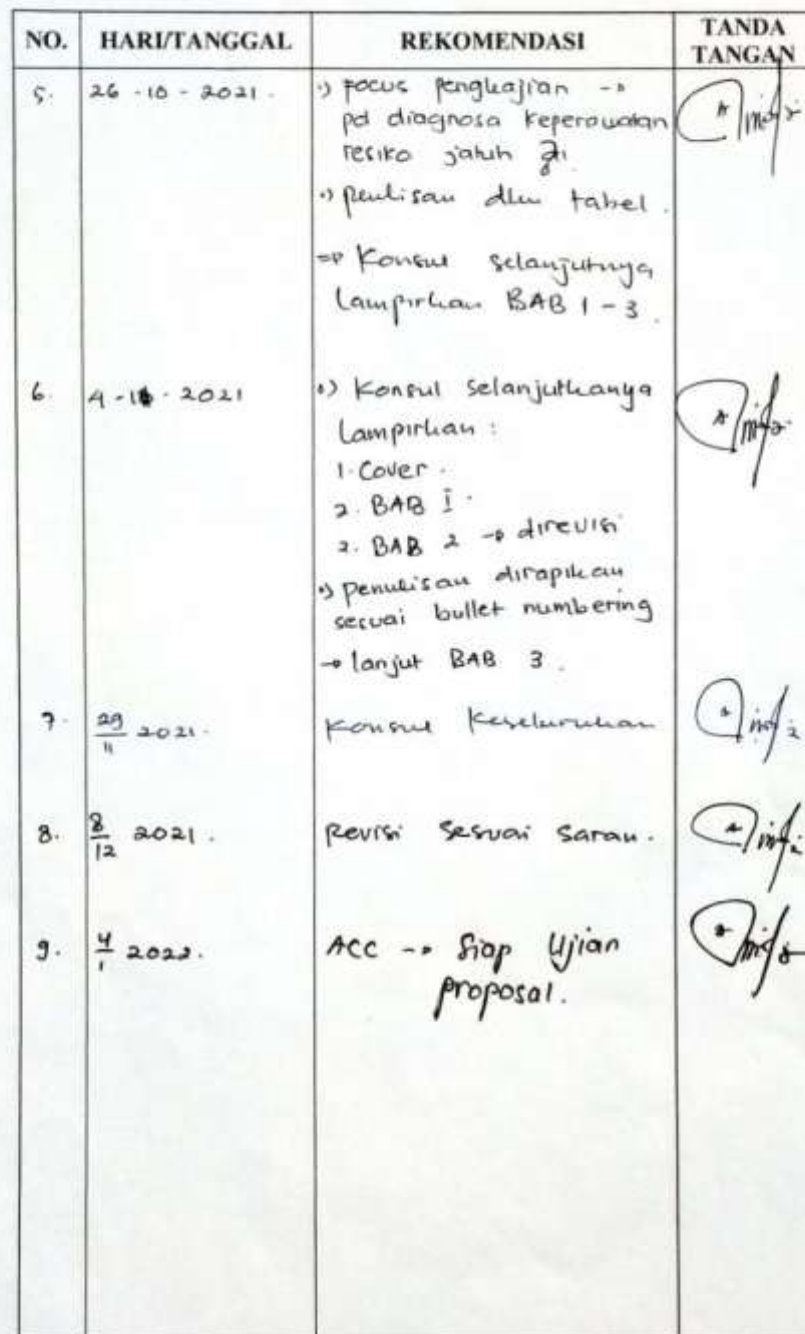 NO. HARI/TANGGAL REKOMENDASI TANDA TANGAN
5. 26-10-2021. •) Focus pengkajian →
pd diagnosa keperawatan
resiko jatuh
•) penulisan dlm tabel.
⇒ Konsul selanjutnya
lampirkan BAB 1-3.
6. 4-11-2021 •) Konsul selanjutkanya
Lampirkan :
1. Cover.
2. BAB I.
2. BAB 2 → direvisi
•) penulisan dirapikan
sesuai bullet numbering
→ lanjut BAB 3.
7. 29/11 2021. Konsul Keseluruhan
8. 8/12 2021. Revisi sesuai saran.
9. 4/1 2022. ACC → Siap Ujian
proposal.